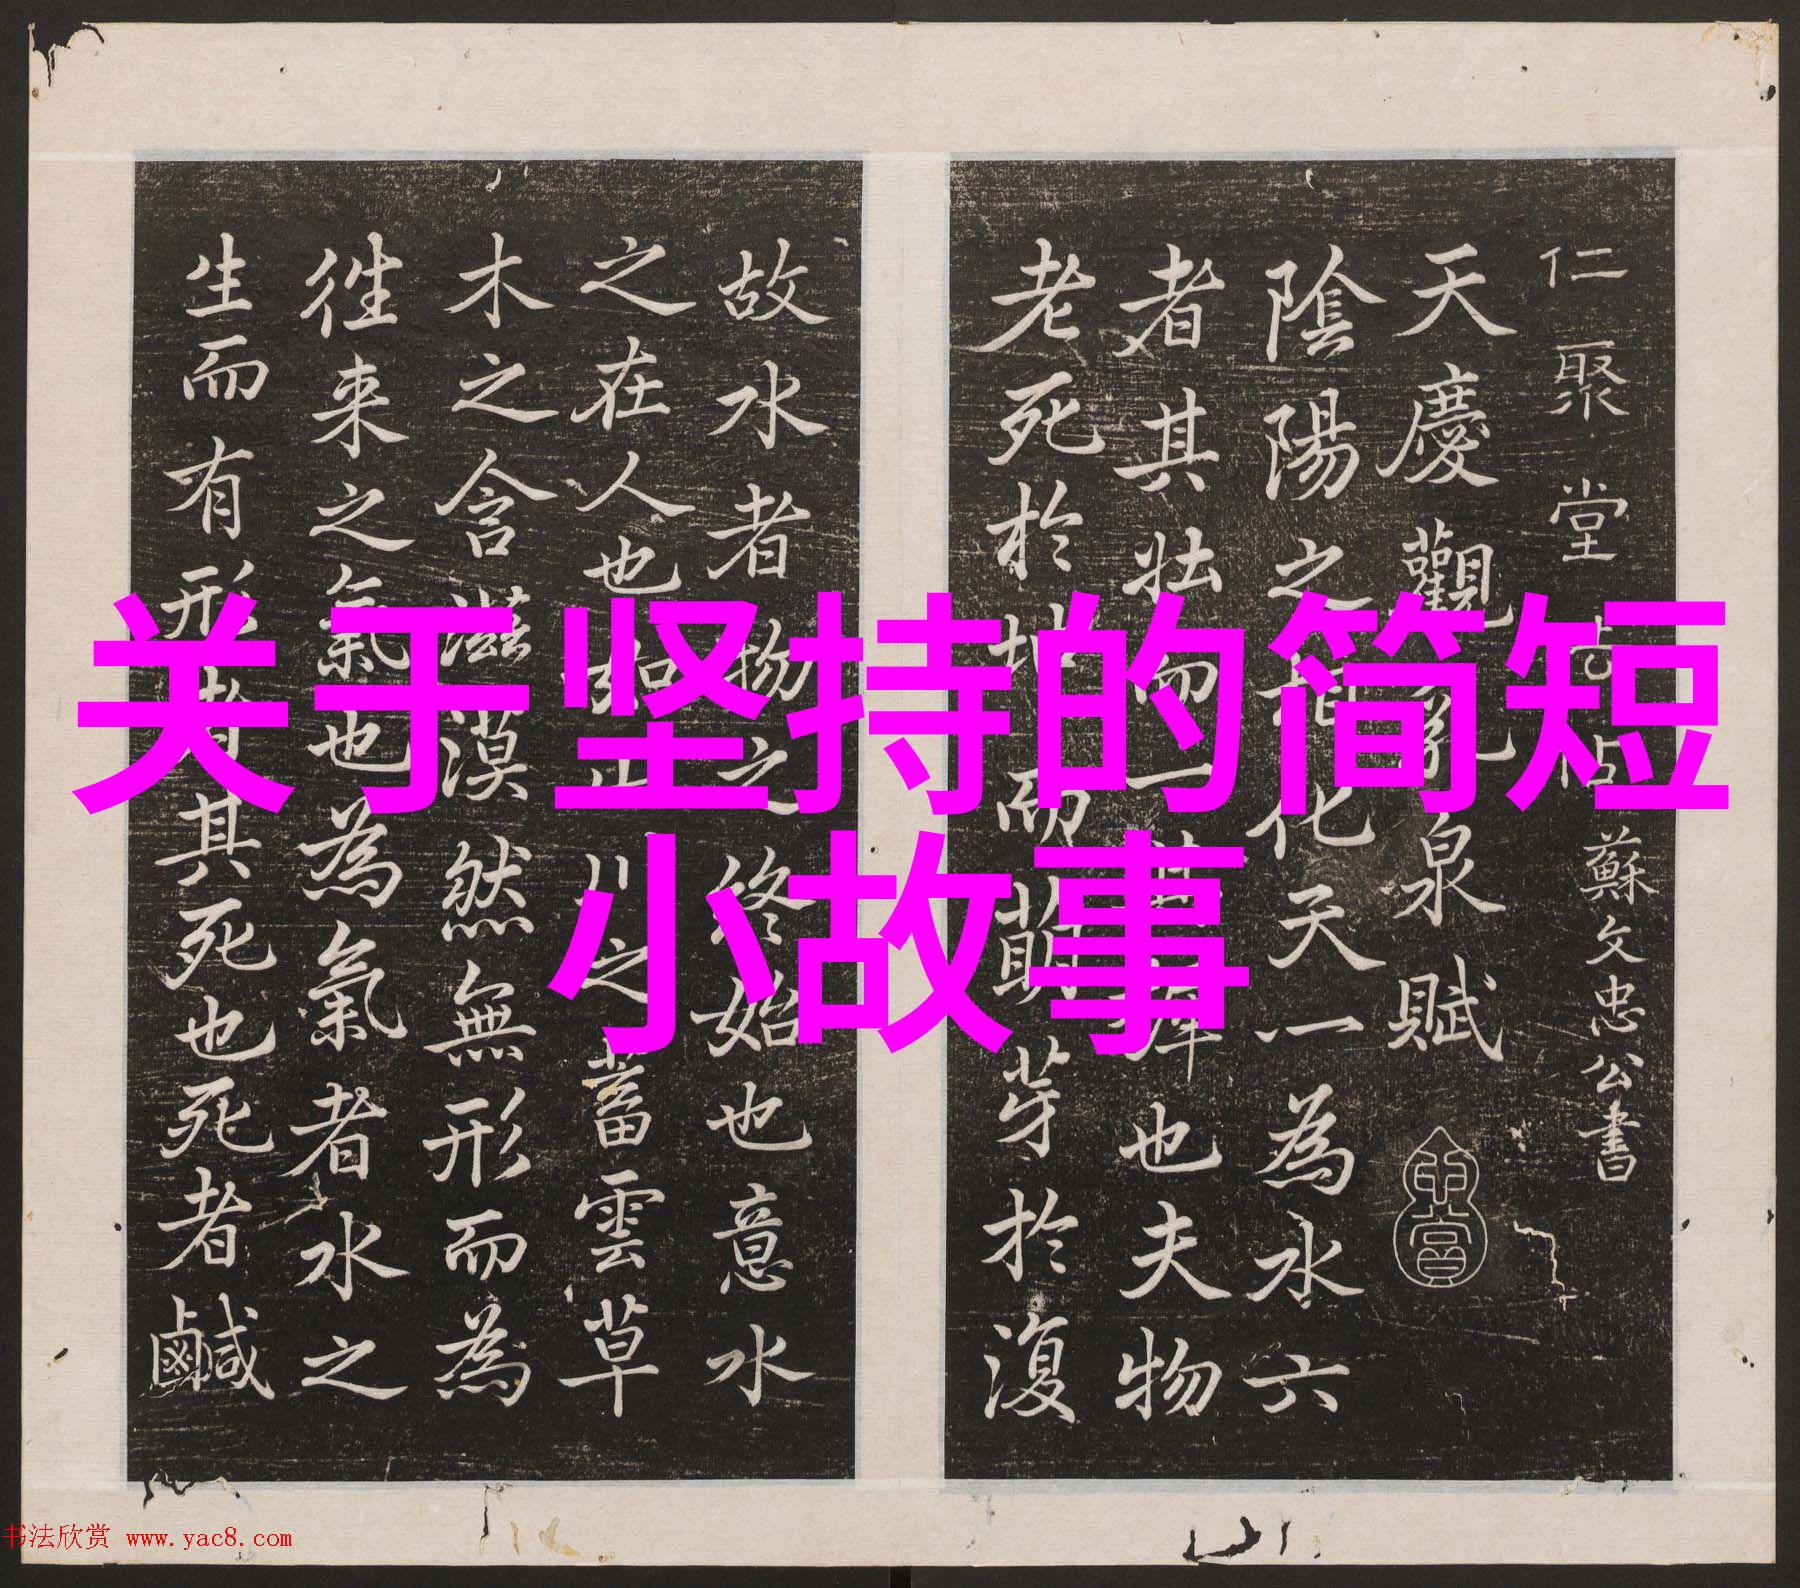 关于坚持的简短
小故事
仁聚堂 蘇文忠公書
天慶觀乳泉賦
陰陽之相化天一為水六
者其壯而一 也夫物
老死於地而萌芽於復
故水者物之終始也意水
之在人也如山川之蓄雲草
木之含滋漠然無形而為
徃来之氣也為氣者水之
生而有形者其死也死者鹹
书法欣赏 www.yac8.com